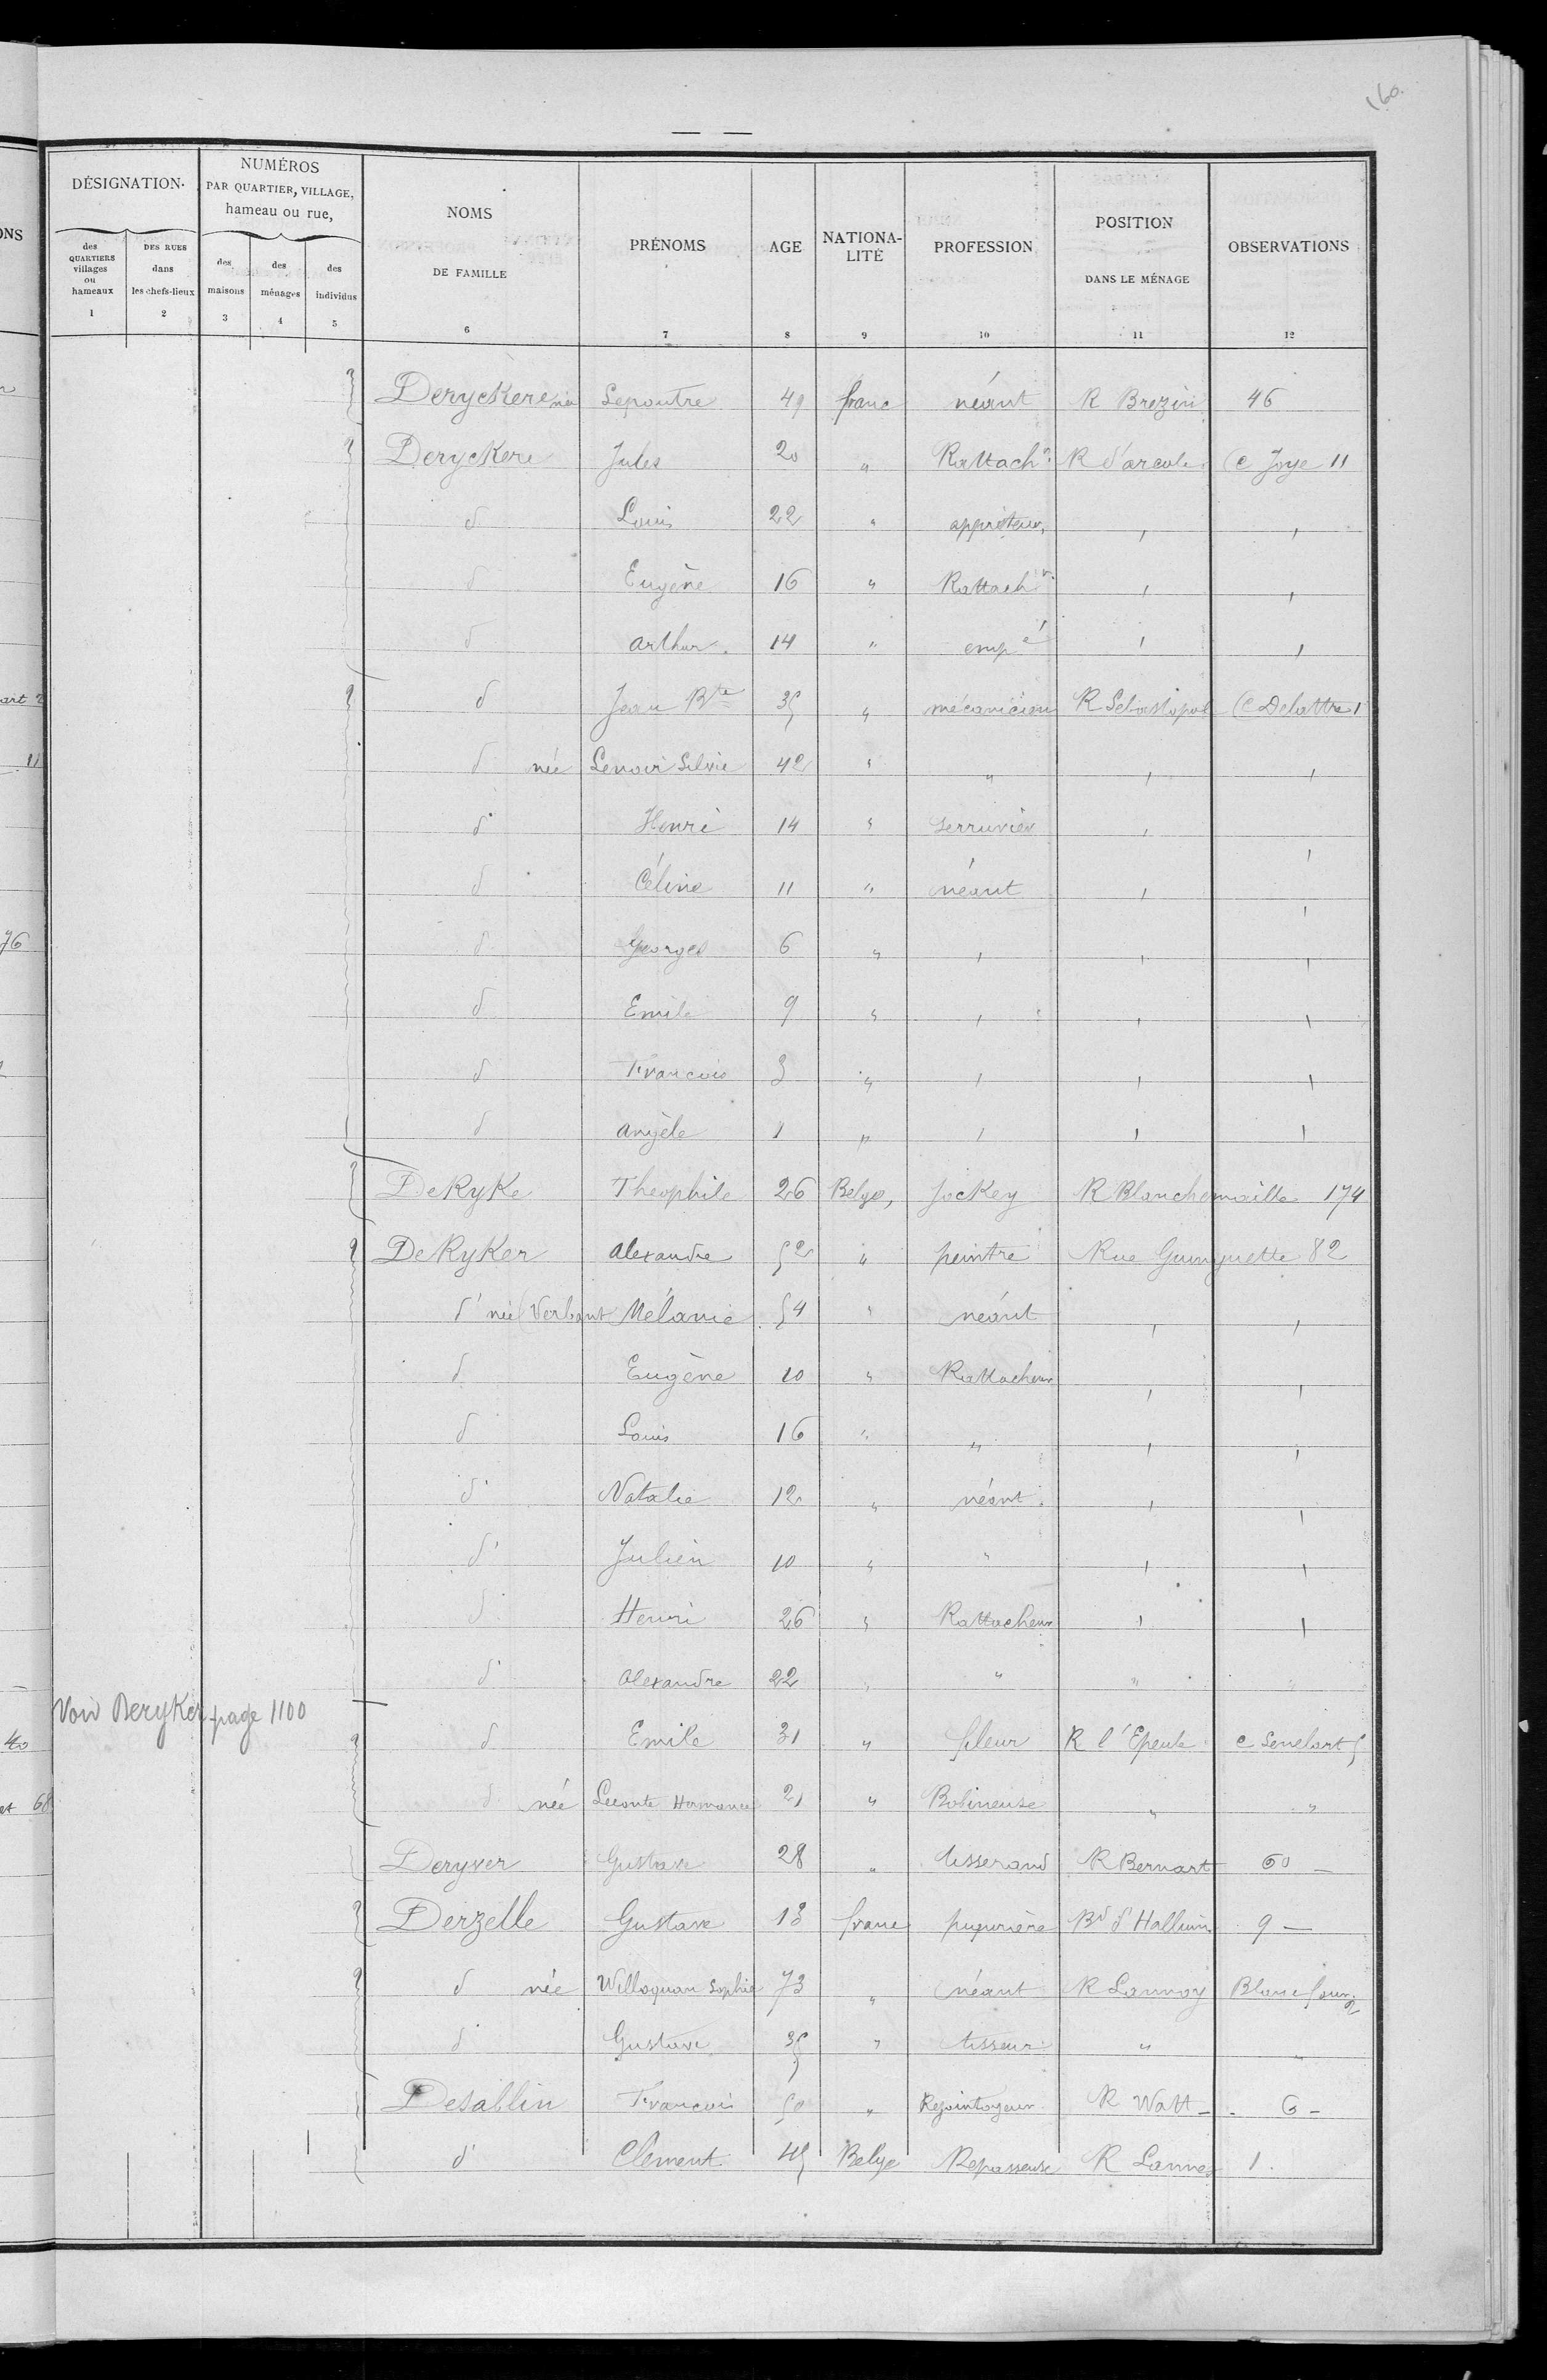 160.
DÉSIGNATION.
NUMÉROS
PAR QUARTIER, VILLAGE,
hameau ou rue,
des QUARTIERS villages ou hameaux
DES RUES dans les chefs-lieux
des maisons
des ménages
des individus
NOMS DE FAMILLE
PRÉNOMS
AGE
NATIONA-LITÉ
PROFESSION
POSITION DANS LE MÉNAGE
OBSERVATIONS
1 2 3 4 5 6 7 8 9 10 11 12
Deryckere née Lepoutre 49 franc néant R Brezin 46
Deryckere Jules 20 " Rattachr R d'arcole (C Joye 11
d Louis 22 " apprêteur " "
d Eugène 16 " Rattachr " "
d arthur 14 " empé " "
d Jean Bte 35 " mécanicien R Sebastopol (C Delattre 1
d née Lenoir Silvie 42 " " " "
d° Henri 14 " serrurier " "
d Céline 11 " néant " "
d Georges 6 " " " "
d Emile 9 " " " "
d Francois 3 " " " "
d angèle 1 " " " "
DeRyKe Théophile 26 Belge, JocKey R Blanchemaille 174
DeRyKer alexandre 52 " peintre Rue Guinguette 82
d° née Mélanie 54 " néant " "
d Eugène 10 " Rattacheur " "
d Louis 16 " " " "
d° Natalie 12 " néant " "
d° Julien 10 " " " "
d° Henri 26 " Rattacheur " "
d° alexandre 22 " " " "
Voir DeryKer page 1100
d Emile 31 " fileur R l'Epeule c Senelart 5
d née Leconte Hermance 21 " Bobineuse " "
Deryver Gustave 28 " tisserand R Bernart 60 —
Derzelle Gustave 13 franc piqurière Bd d'Halluin 9 —
d née Willoquau Sophie 73 " néant R Lannoy Blanc four 2
d Gustave 35 " tisseur " "
Desablin Francois 50 " Rejointoyeur R Watt - 6 -
d° Clement 45 Belge Repasseuse R Lannes 1.